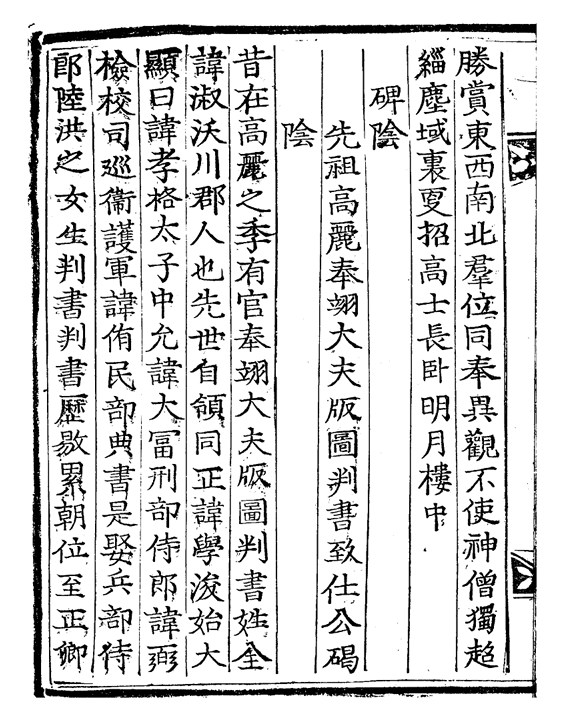 勝賞東西南北羣位同奉異觀不使神僧獨超
緇塵域裏更招高士長臥明月樓中
碑陰
先祖高麗奉翊大夫版圖判書致仕公碣
陰
昔在高麗之季有官奉翊大夫版圖判書姓全
諱淑沃川郡人也先世自領同正諱學浚始大
顯曰諱孝格太子中允諱大冨刑部侍郎諱弼
檢校司巡衛護軍諱侑民部典書是娶兵部侍
郎陸洪之女生判書判書歷敭累朝位至正卿